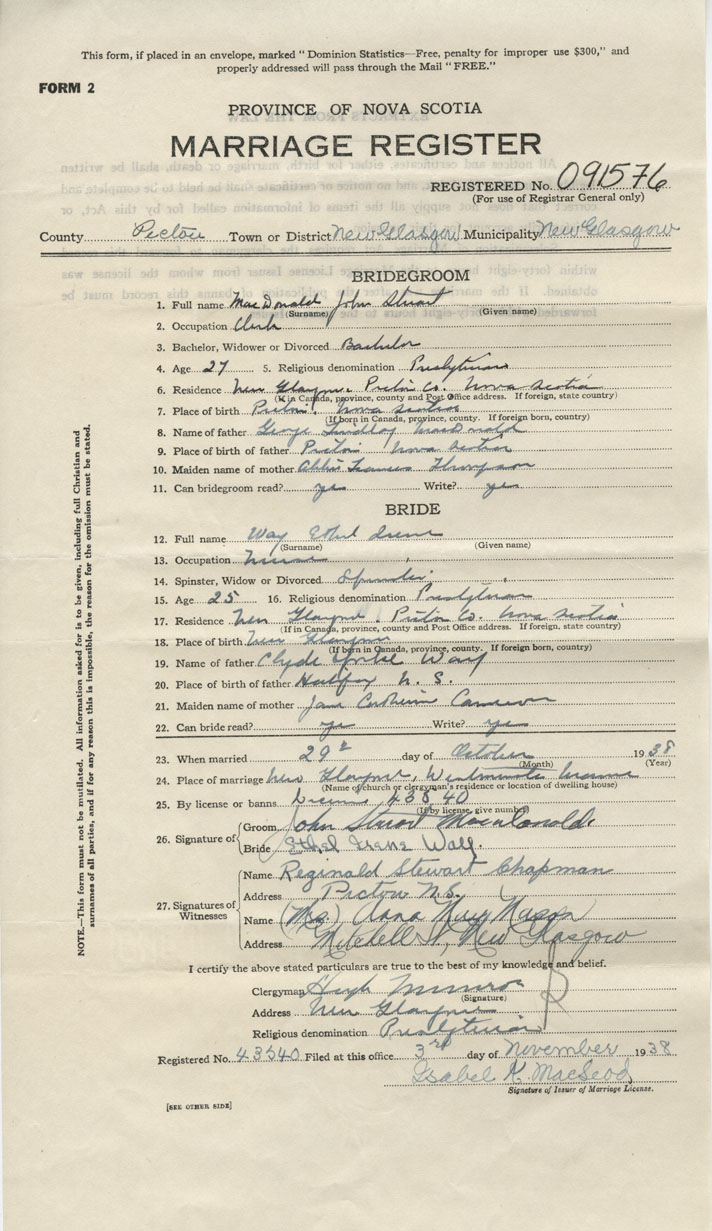 This form, if placed in an envelope, marked "Dominion Statistics—Free, penalty for improper use $300," and
properly addressed will pass through the Mail "FREE."
FORM 2
PROVINCE OF NOVA SCOTIA
MARRIAGE REGISTER
REGISTERED No. 091576
(For use of Registrar General only)
County Pictou Town or District New Glasgow Municipality New Glasgow
BRIDEGROOM
1. Full name MacDonald John Stuart
(Surname) (Given name)
2. Occupation Clerk
3. Bachelor, Widower or Divorced Bachelor
4. Age 27 5. Religious denomination Presbyterian
6. Residence New Glasgow, Pictou Co. Nova Scotia
(If in Canada, province, county and Post Office address. If foreign, state country)
7. Place of birth Pictou, Nova Scotia
(If born in Canada, province, county. If foreign born, country)
8. Name of father George Lindlay MacDonald
9. Place of birth of father Pictou Nova Scotia
10. Maiden name of mother Abbie Frances Thompson
11. Can bridegroom read? yes Write? yes
BRIDE
12. Full name Way Ethel Irene
(Surname) (Given name)
13. Occupation Nurse
14. Spinster, Widow or Divorced Spinster
15. Age 25 16. Religious denomination Presbyterian
17. Residence New Glasgow, Pictou Co. Nova Scotia
(If in Canada, province, county and Post Office address. If foreign, state country)
18. Place of birth New Glasgow
(If born in Canada, province, county. If foreign born, country)
19. Name of father Clyde Way
20. Place of birth of father Halifax N. S.
21. Maiden name of mother Jane Cameron
22. Can bride read? yes Write? yes
23. When married 29 day of October 1938
(Month) (Year)
24. Place of marriage New Glasgow, Westminster Manse
(Name of church or clergyman's residence or location of dwelling house)
25. By license or banns License 43540
(If by license, give number)
26. Signature of Groom John Stuart MacDonald
Bride Ethel Irene Way.
27. Signatures of Witnesses
Name Reginald Stewart Chapman
Address Pictow N.S.
Name (Mrs.) Anna Mary Mason
Address Mitchell St, New Glasgow
I certify the above stated particulars are true to the best of my knowledge and belief.
Clergyman Hugh Munroe
(Signature)
Address New Glasgow
Religious denomination Presbyterian
Registered No. 43540 Filed at this office 3rd day of November 1938
Isabel K. MacLeod
Signature of Issuer of Marriage License.
[SEE OTHER SIDE]
NOTE.—This form must not be mutilated. All information asked for is to be given, including full Christian and
surnames of all parties, and if for any reason this is impossible, the reason for the omission must be stated.